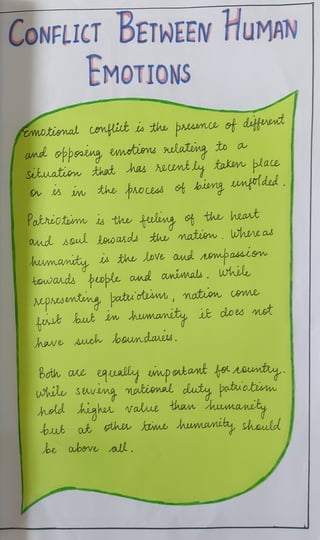 CONFLICT BETWEEN HUMAN
EMOTIONS
Emotional conflict is the presence of different
and opposing emotions relating to a
situation that has recently taken place
or is in the process of being unfolded.
Patriotism is the feeling of the heart
and soul towards the nation. Whereas
humanity is the love and compassion
towards people and animals. While
representing patriotism, nation come
first but in humanity it does not
have such boundaries.
Both are equally important for country.
While serving national duty patriotism
hold higher value than humanity
but at other time humanity should
be above all.